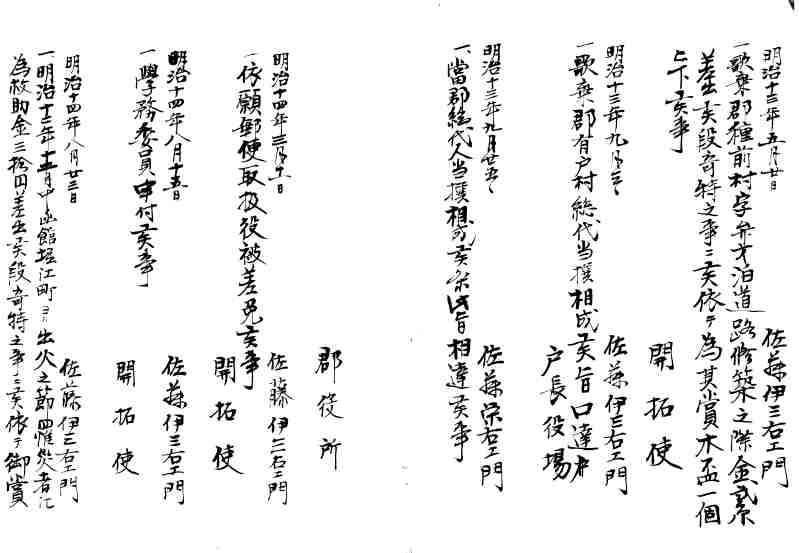 明治十三年五月廿日
佐藤伊三右エ門
一歌棄郡種前村字弁才泊道路修築之際金貳円
差出候段奇特之事ニ候依テ為其賞木盃一個
下候事
開拓使
明治十三年九月
佐藤伊三右エ門
一歌棄郡有戸村総代当撰相成候旨口達
戸長役場
明治十三年九月廿五
佐藤栄右エ門
一當郡総代人当撰相成候条此旨相達候事
郡役所
明治十四年三月
佐藤伊三右エ門
一依願郵便取扱役被差免候事
開拓使
明治十四年八月十五日
佐藤伊三右エ門
一學務委員申付候事
開拓使
明治十四年八月廿三日
佐藤伊三右エ門
一明治十二年十二月中函館堀江町ヨリ出火之節罹災者江
為救助金三拾円差出候段奇特之事ニ候依テ御賞